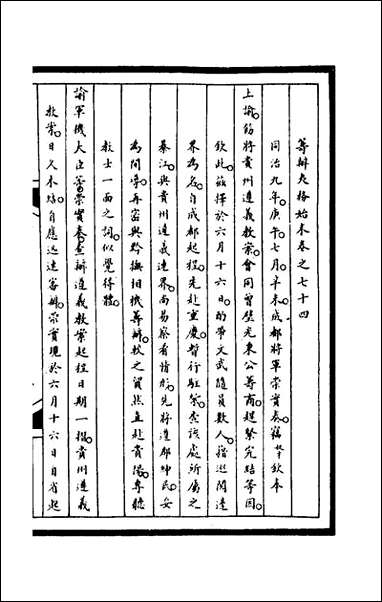 籌辦夷務始末卷之七十四
同治九年。庚午七月。辛未成都將軍崇實奏。竊 欽奉
上諭。飭將貴州遵義教案。會同曾璧光秉公籌商。趕緊完結等因。
欽此。茲擇於六月十六日。酌帶文武隨員數人。藉巡閱邊
界為名。自成都起程。先赴重慶。暫行駐紮。查該處所屬之
綦江。與貴州遵義連界。尚易察看情形。先將遵郡紳民妥
為開導。再密與黔撫相機籌辦。較之貿然直赴貴陽。專聽
教士一面之詞。似覺得體。
諭軍機大臣等。崇實奏。查辦遵義教案起程日期一摺。貴州遵義
教案。日久未結。自應迅速審辦。崇實現於六月十六日自省起